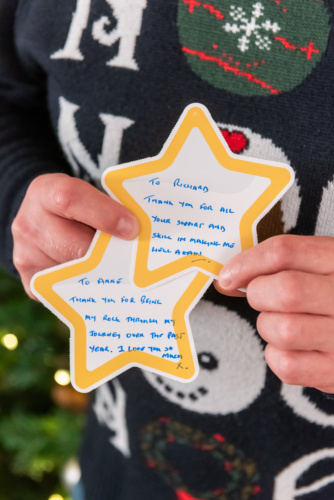 TO RICHARD
THANK YOU FOR ALL
YOUR SUPPORT AND
SKILL IN MAKING ME
WELL AGAIN
TO
THANK YOU FOR BEING
MY ROCK THROUGH MY
JOURNEY OVER THE PAST
YEAR. I LOVE YOU SO
MUCH
X.